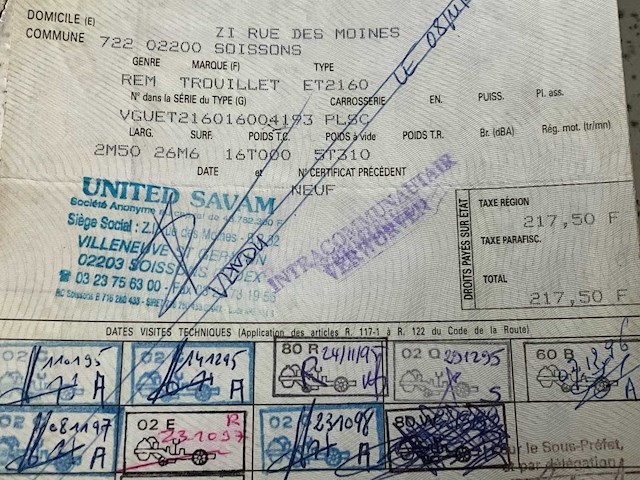 DOMICILE (E)
COMMUNE
ZI RUE DES MOINES
722 02200 SOISSONS
GENRE MARQUE (F) TYPE
REM TROUILLET ET2160
N° dans la SÉRIE du TYPE (G) CARROSSERIE EN. PUISS. Pl. ass.
VGUET216016004193 PLSC
LARG. SURF. POIDS T.C. POIDS à vide POIDS T.R. Br. (dBA) Rég. mot. (tr/mn)
2M50 26M6 16T000 5T310
DATE et N° CERTIFICAT PRÉCÉDENT
NEUF
VENDU LE 08/
UNITED SAVAM
Société Anonyme
Siège Social : Z.I. rue des Moines
VILLENEUVE ST GERMAIN
02203 SOISSONS CEDEX
☎ 03 23 75 63 00 - FAX 03
INTRACOMMUNAUTAIR
VERWORVEN
DROITS PAYÉS SUR ÉTAT
TAXE RÉGION
217,50 F
TAXE PARAFISC.
TOTAL
217,50 F
DATES VISITES TECHNIQUES (Application des articles R. 117-1 à R. 122 du Code de la Route)
02 110195 A
02 141295 A
80 R 24/11/95
02 Q 291295 S
60 B A
02 081197 A
02 E R 231097
02 231098 A
80 W
le Sous-Préfet,
et par délégation